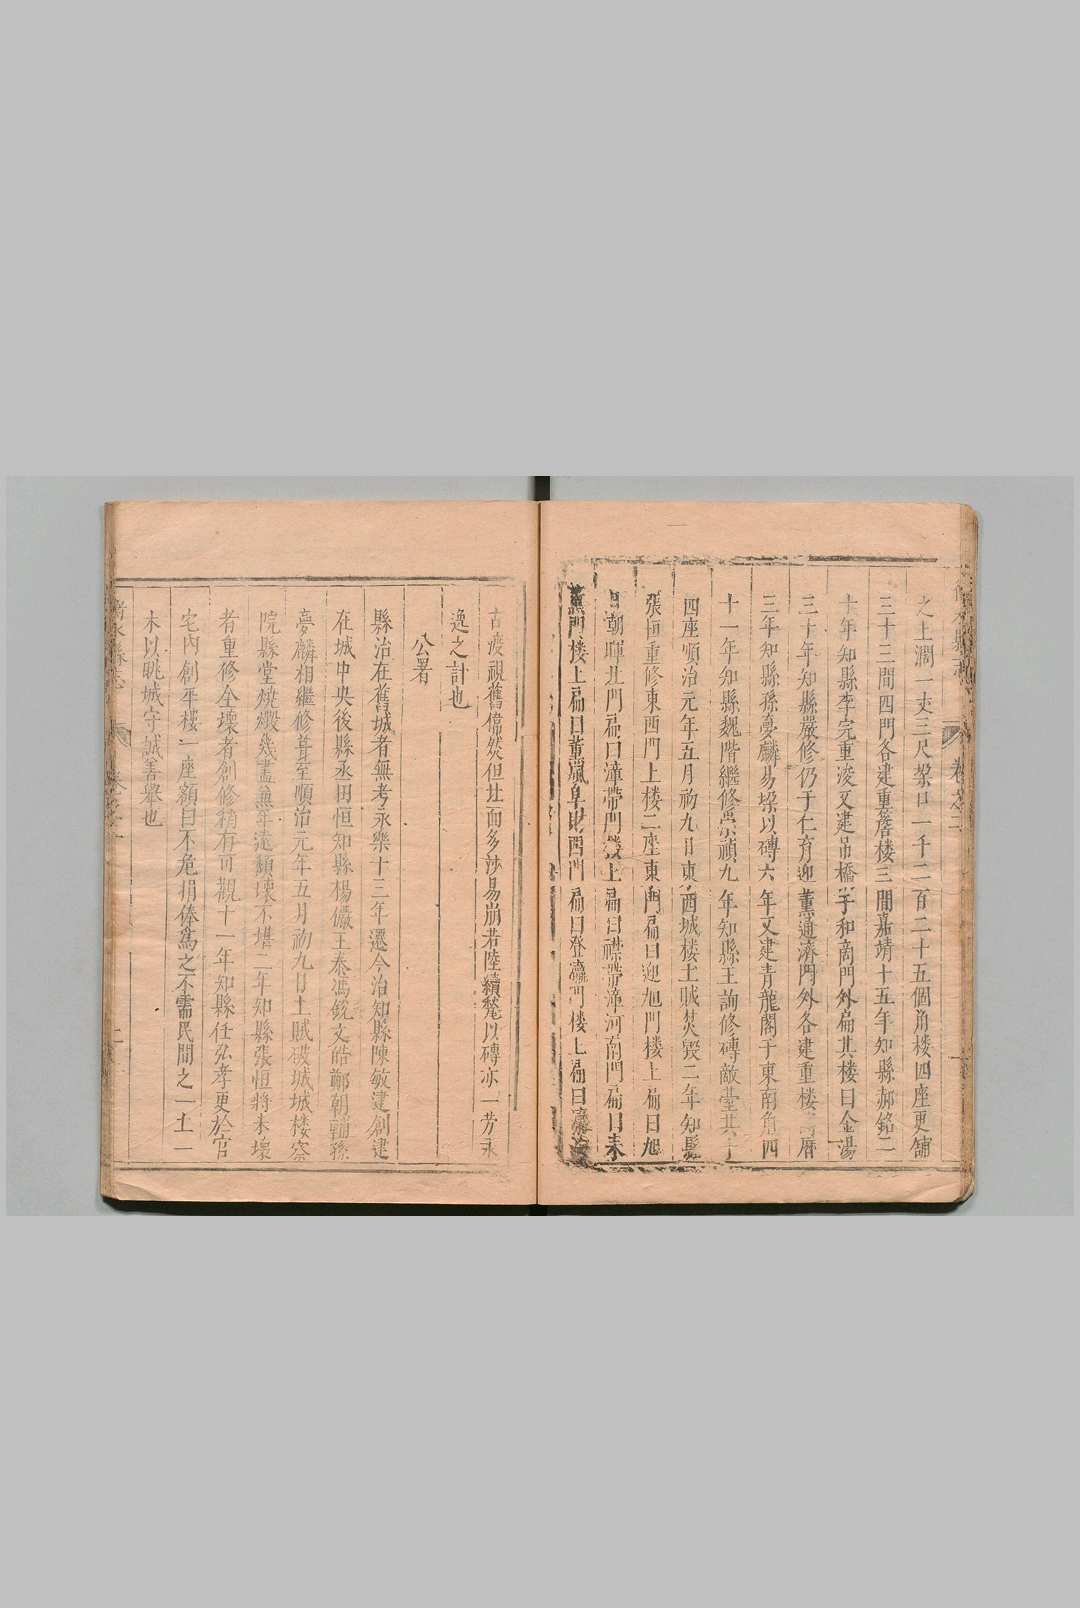 之上濶一丈三尺垜口一千二百二十五個角楼四座更舖
三十三間四門各建重簷楼三間嘉靖十五年知縣郝銘二
十年知縣李完重浚又建吊橋于和南門外扁其楼曰金湯
三十年知縣嚴修仍于仁育迎薰通濟門外各建重楼萬曆
三年知縣孫夢麟易垜以磚六年又建青龍閣于東南角四
十一年知縣魏階繼修崇禎九年知縣王訥修磚敵臺共十
四座順治元年五月初九日東西城楼土賊焚毀二年知縣
張恒重修東西門上楼二座東門扁曰迎旭門楼上扁曰旭
日朝暉北門扁曰漳帶門楼上扁曰襟帶漳河南門扁曰来
薰門楼上扁曰薰風阜財西門扁曰登瀛門楼上扁曰瀛海
古渡視舊偉然但址面多沙易崩若陸續甃以磚亦一劳永
逸之計也
公署
縣治在舊城者無考永樂十三年遷今治知縣陳敏建創建
在城中央後縣丞田恒知縣楊儼王泰馮銳文皓鄭朝輔孫
夢麟相繼修葺至順治元年五月初九日土賊破城城楼察
院縣堂燒燬幾盡兼年遠頽壞不堪二年知縣張恒將未壞
者重修全壞者創修稍有可觀十一年知縣任弘孝更於官
宅内創平楼一座額曰不危捐俸爲之不需民間之一土一
木以眺城守誠善舉也
衡水縣志
卷之二